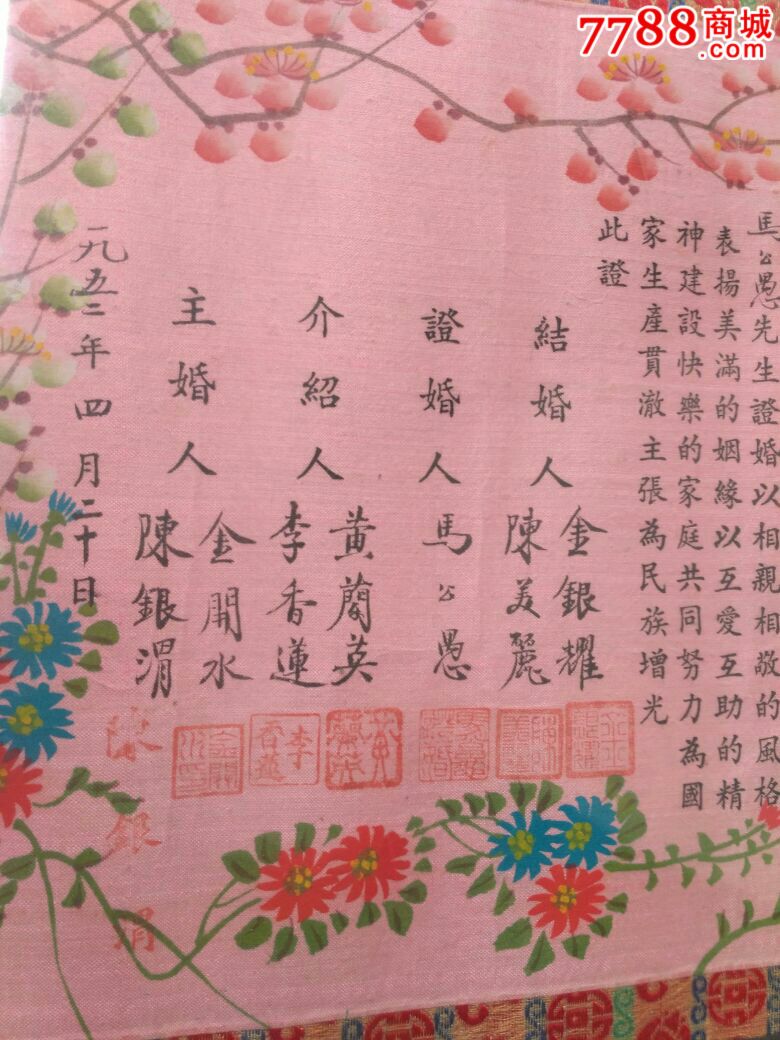 7788商城
.com
馬公愚先生證婚以相親相敬的風格
表揚美滿的姻緣以互愛互助的精
神建設快樂的家庭共同努力為國
家生產貫澈主張為民族增光
此證
結婚人 金銀耀
陳美麗
證婚人 馬公愚
介紹人 黃蘭英
李香蓮
主婚人 金開水
陳銀渭
一九五二年四月二十日
李香蓮
金開水印
陳銀渭